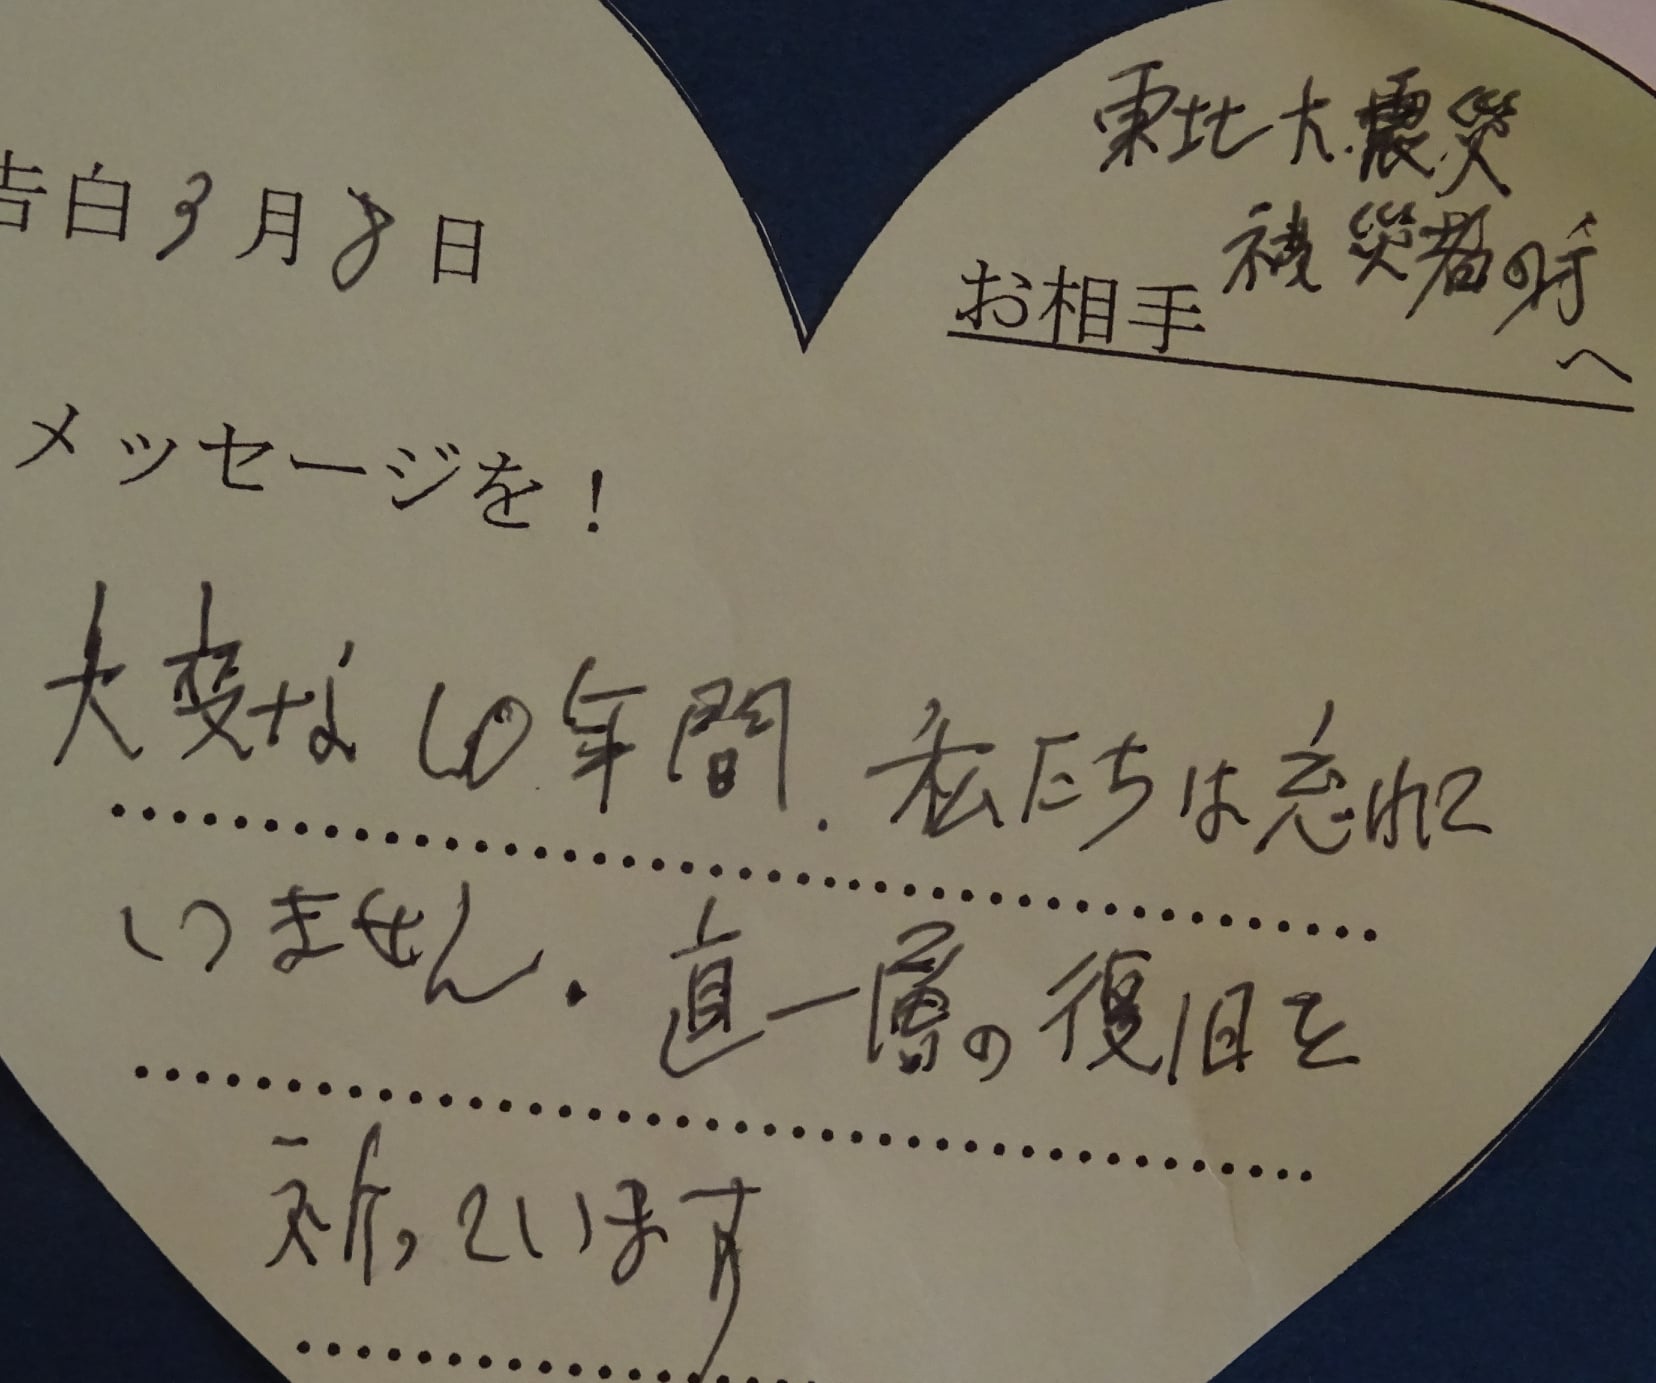 東北大震災
被災者の方
お相手
へ
告白3月8日
メッセージを！
大変な10年間．私たちは忘れて
いません．直一層の復旧を
祈っています